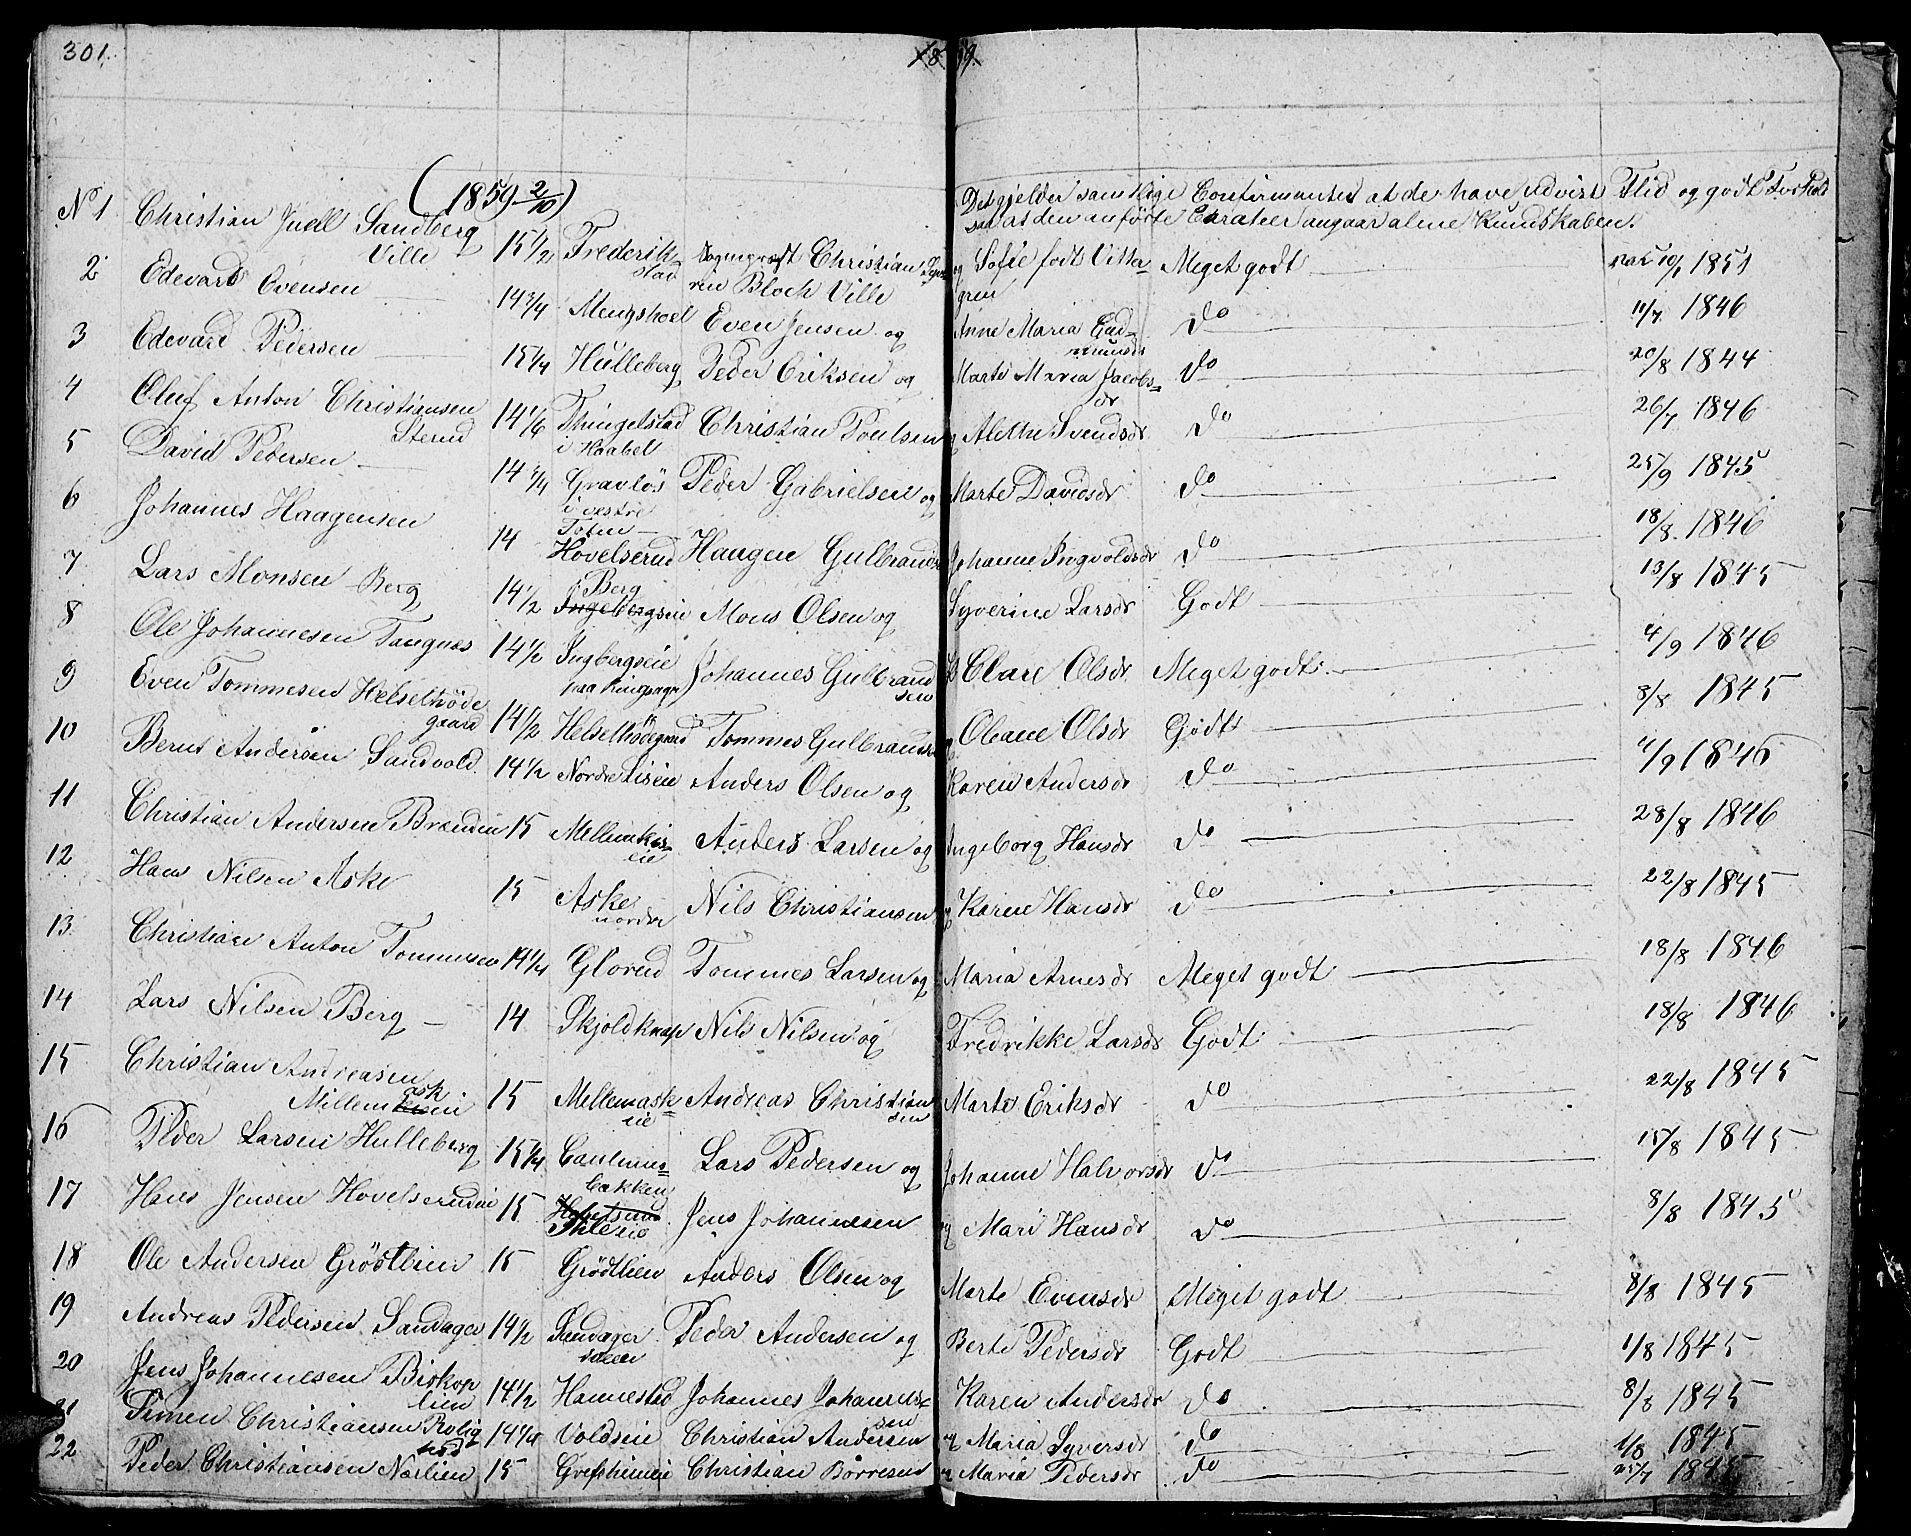 301.
1859.
(1859 2/10)
Det gjelder samtlige Confirmanter at de have udvist Flid og godt Forhold
saa at den anførte Carakter angaar alene Kundskaben.
No 1 Christian Juell Sandberg Ville 15 1/2 Frederikstad Christian Bloch Ville og Sofie født Vittergren Meget godt 1851
2 Edevard Evensen 14 3/4 Mengshoel Even Jensen og Anne Maria Eadmundsdr do 11/7 1846
3 Edevard Pedersen 15 1/4 Hulleberg Peder Eriksen og Marte Maria Jacobsdr do 20/8 1844
4 Oluf Anton Christiansen Sterud 14 1/6 Thingelstad i Haabet Christian Poulsen og Alethe Svendsdr do 26/7 1846
5 David Pedersen 14 3/4 Gravlös i vestre Toten Peder Gabrielsen og Marte Davidsdr do 25/9 1845
6 Johannes Haagensen 14 Hovelserud Haagen Gulbrands Johanne Ingvoldsdr do 18/8 1846
7 Lars Monsen Berg 14 1/2 Berg Ingebergseie Mons Olsen og Syverine Larsdr Godt 13/8 1845
8 Ole Johannesen Tangnes 14 1/2 Ingbergseie paa Ringsager Johannes Gulbrandsen og Oleane Olsdr Meget godt 4/9 1846
9 Even Tommesen Helsethødegaard 14 1/2 Helsethødegaard Tommes Gulbrands og Obane Olsdr Godt 8/8 1845
10 Bernt Andersen Sandvold 14 1/2 Nordre Liseie Anders Olsen og Karen Andersdr do 4/9 1845
11 Christian Andersen Brænden 15 Mellemkiseie Anders Larsen og Ingeborg Hansdr do 28/8 1846
12 Hans Nilsen Aske 15 Aske nordre Nils Christiansen og Karen Hansdr do 22/8 1845
13. Christian Anton Tommesen 14 1/4 Glorud Tommes Larsen og Maria Arnesdr Meget godt 18/8 1846
14 Lars Nilsen Berg 14 Skjoldknap Nils Nilsen og Fredrikke Larsdr Godt 18/8 1846
15 Christian Andreasen Mellemaskeie 15 Mellemaskeie Andreas Christiansen Marte Eriksdr do 22/8 1845
16 Peder Larsen Hulleberg 15 1/4 bakken Lars Pedersen og Johanne Halvorsdr do 15/8 1845
17 Hans Jensen Hovelserudeie 15 Jens Johannesen og Mari Hansdr do 8/8 1845
18 Ole Andersen Grödtlien 15 Grödtlien Anders Olsen og Marte Evensdr Meget godt 8/8 1845
19 Andreas Pedersen Sandager 14 1/2 Sandager Peder Andersen og Berte Pedersdr Godt 1/8 1845
20 Jens Johannesen Biskoplien 14 1/2 Hannestad Johannes Johannessen Karen Andersdr do 8/8 1845
21 Simen Christiansen Rolighed 14 1/4 Voldseie Christian Andersen og Maria Syversdr do 1/8 1845
22 Peder Christiansen Norlien 15 Grefsheimeie Christian Börresen og Maria Pedersdr do 25/7 1845